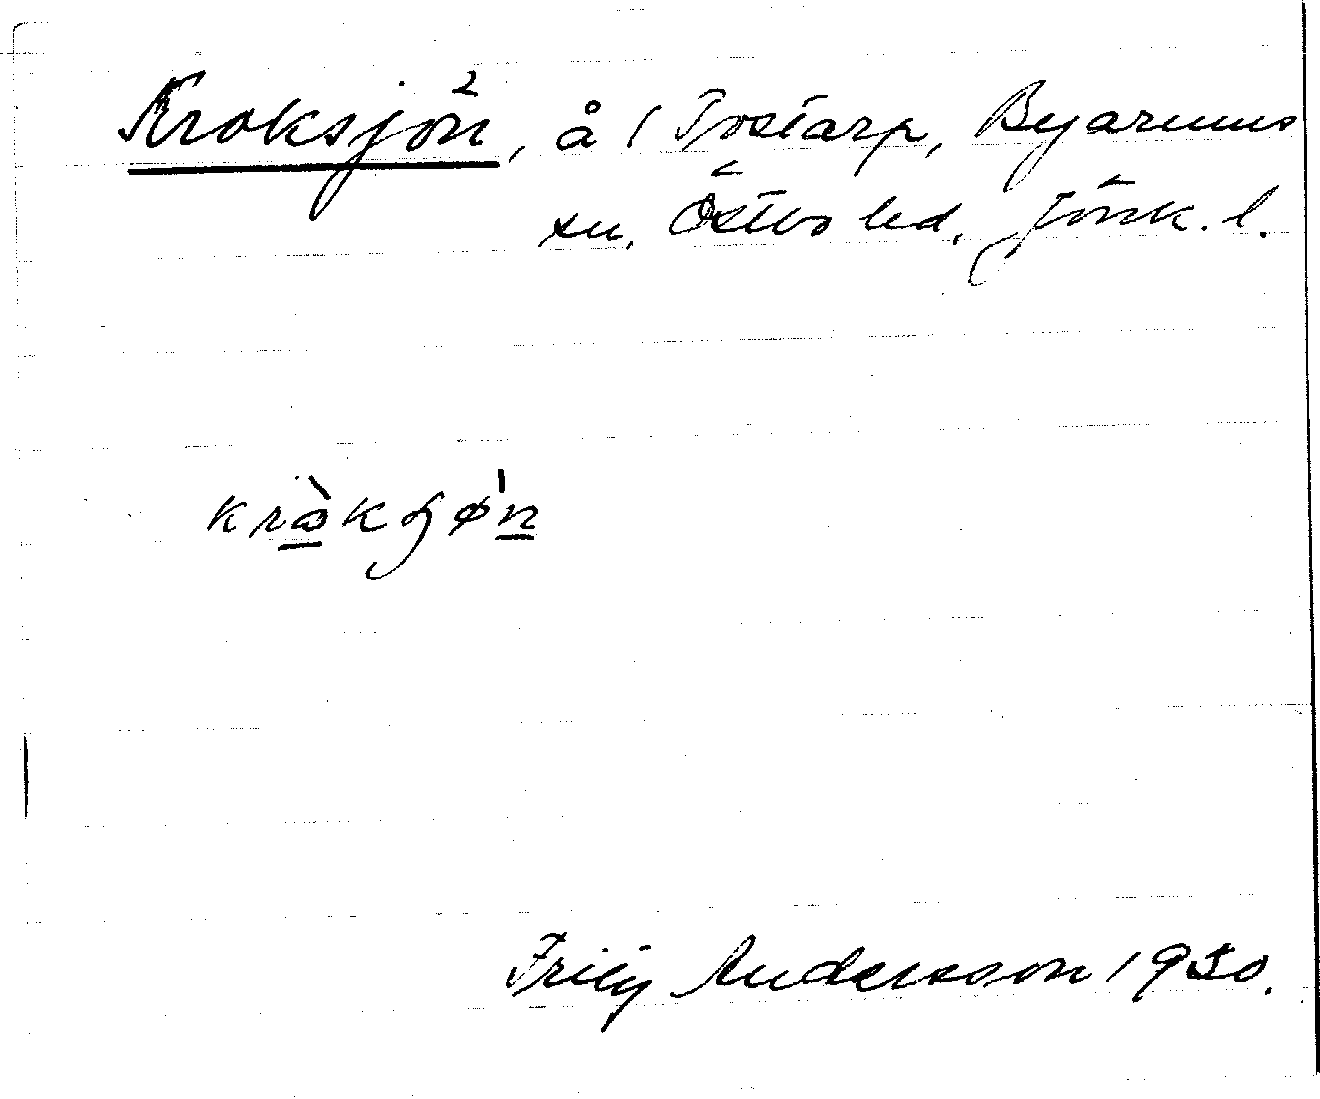 Kroksjön, å i Tostarp, Byarums
sn. Östbo hd. Jönk. l.
kråkʃøn
Andersson 1930.